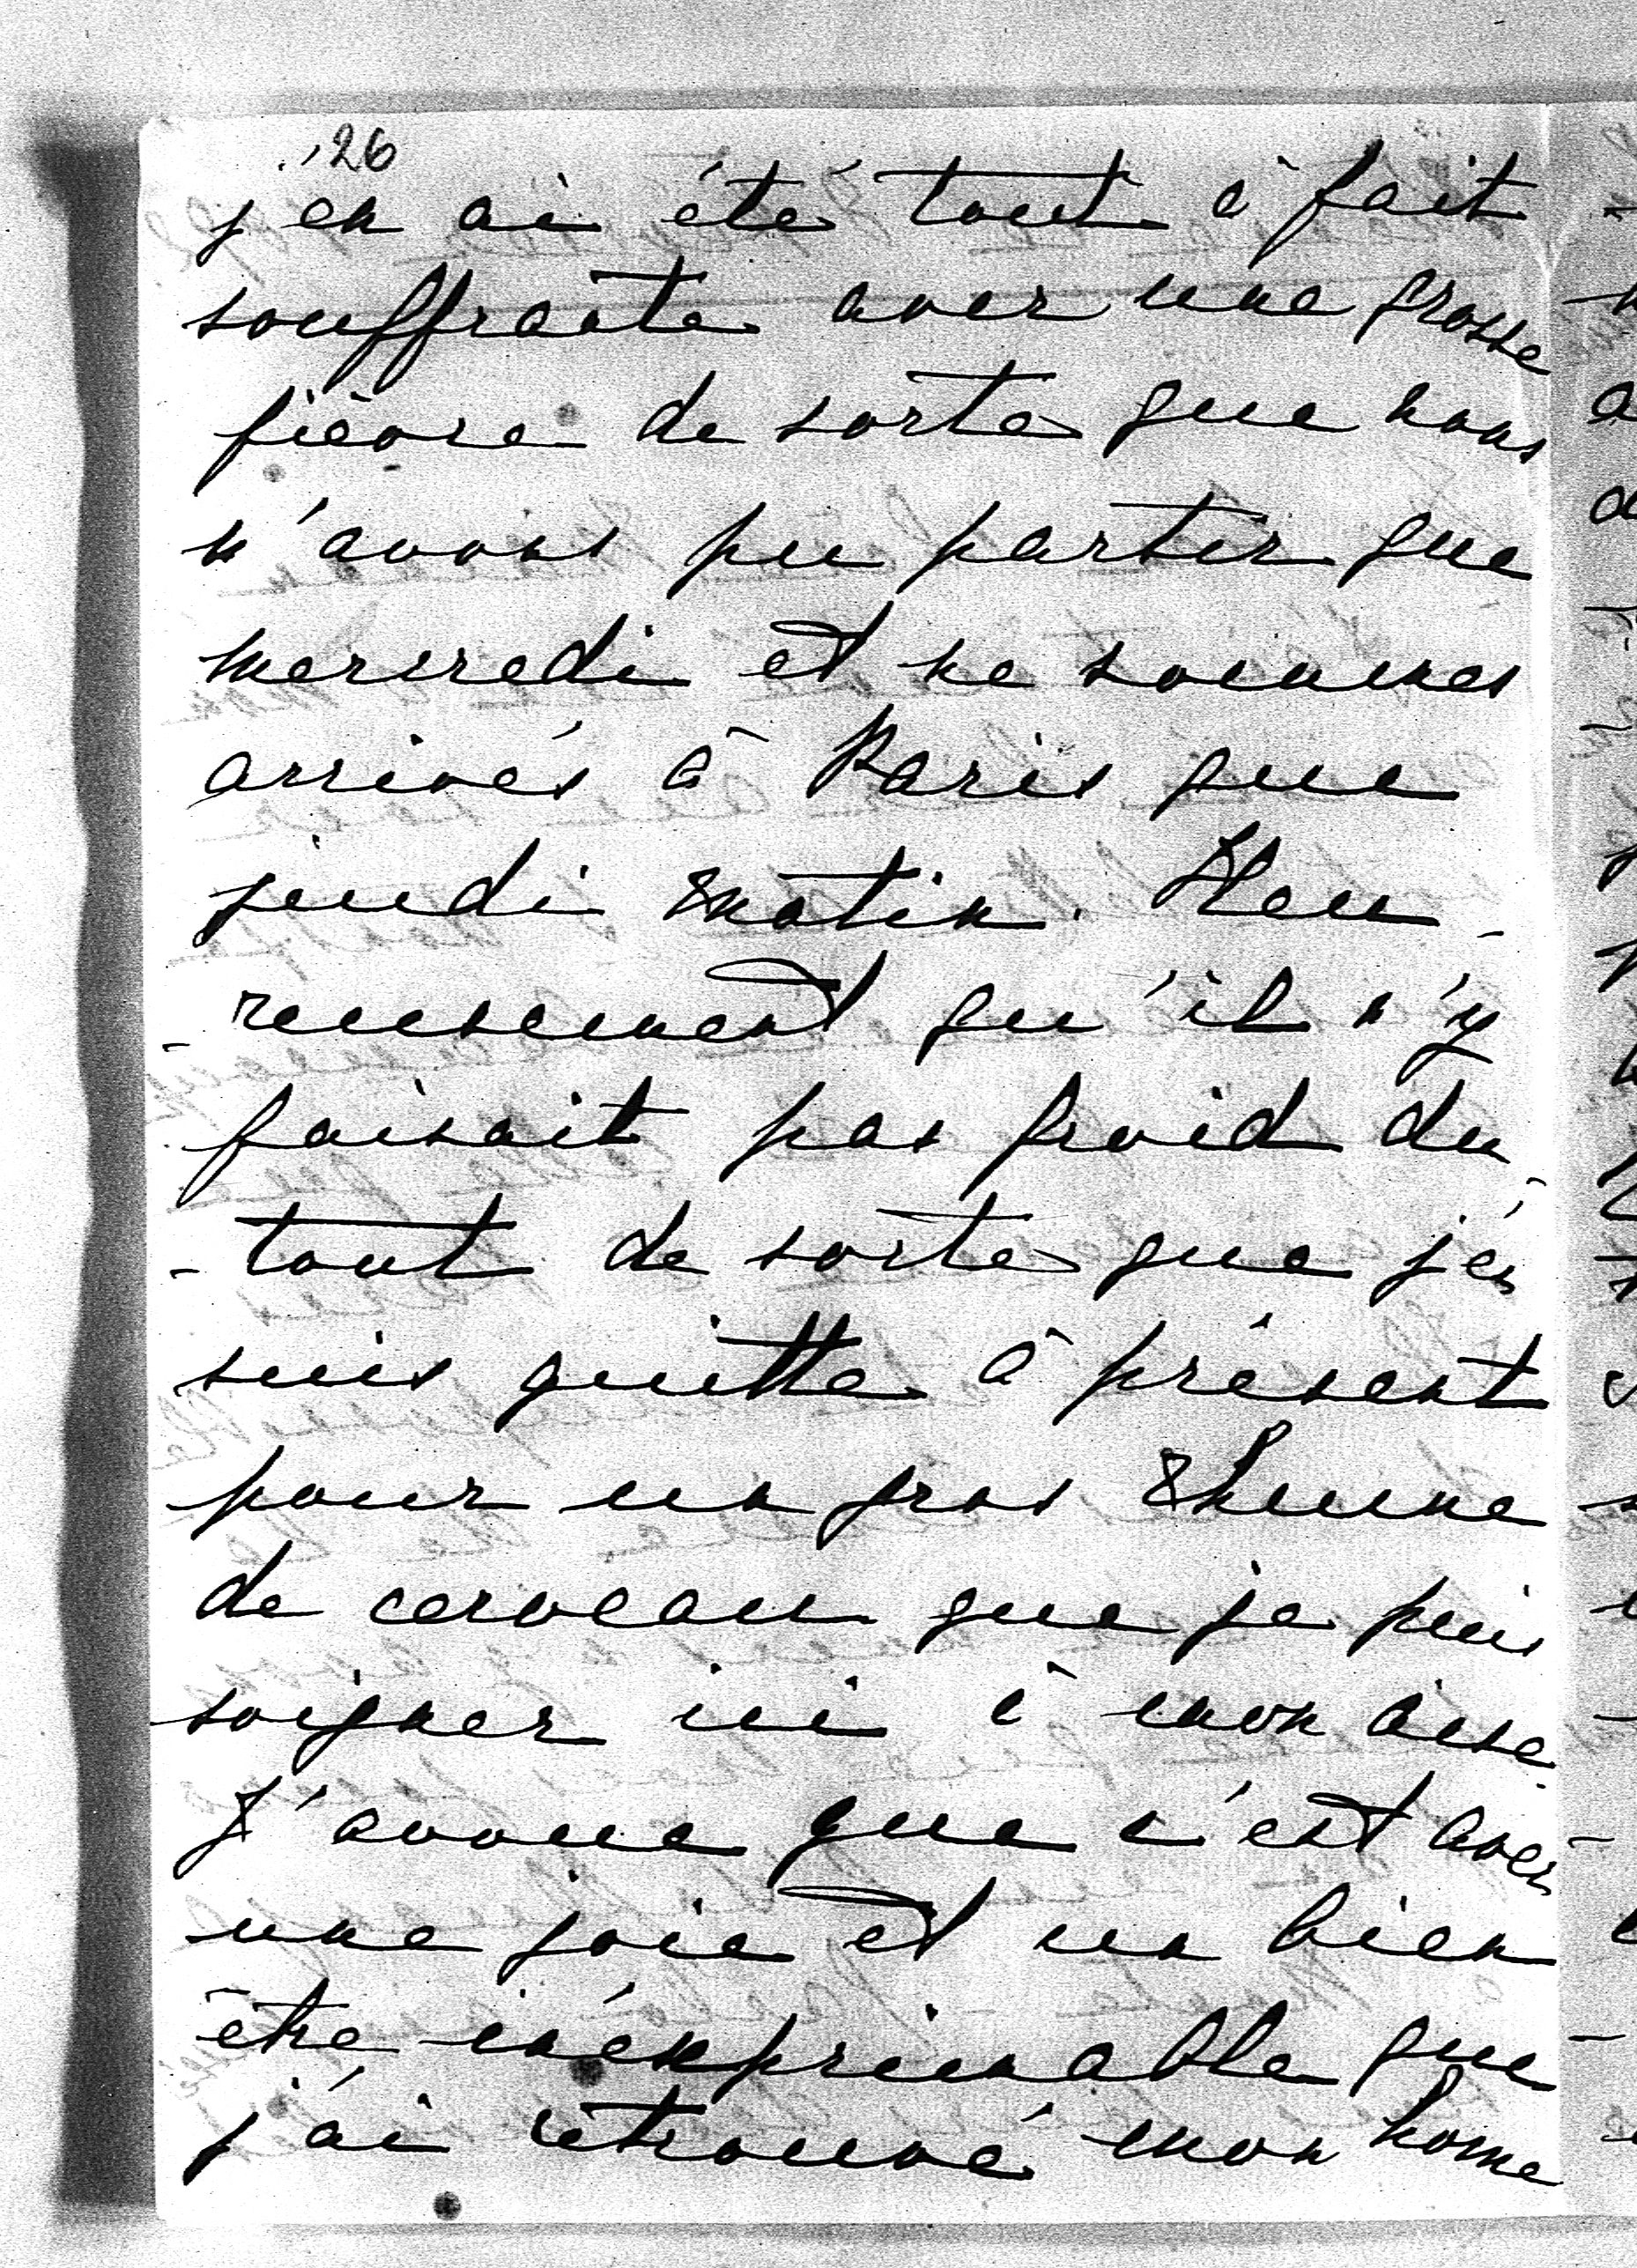 26
j'en ai été tout à fait
souffrante avec une grosse
fièvre de sorte que nous
n'avons pu partir que
mercredi et ne sommes
arrivés à Paris que
jeudi matin. Heu-
-reusement qu'il n'y
faisait pas froid du-
-tout de sorte que j'en
suis quitte à présent
pour un gros Rhume
de cerveau que je puis
soigner ici à mon aise.
J'avoue que c'est avec
une joie et un bien
être inexprimable que
j'ai retrouvé mon home